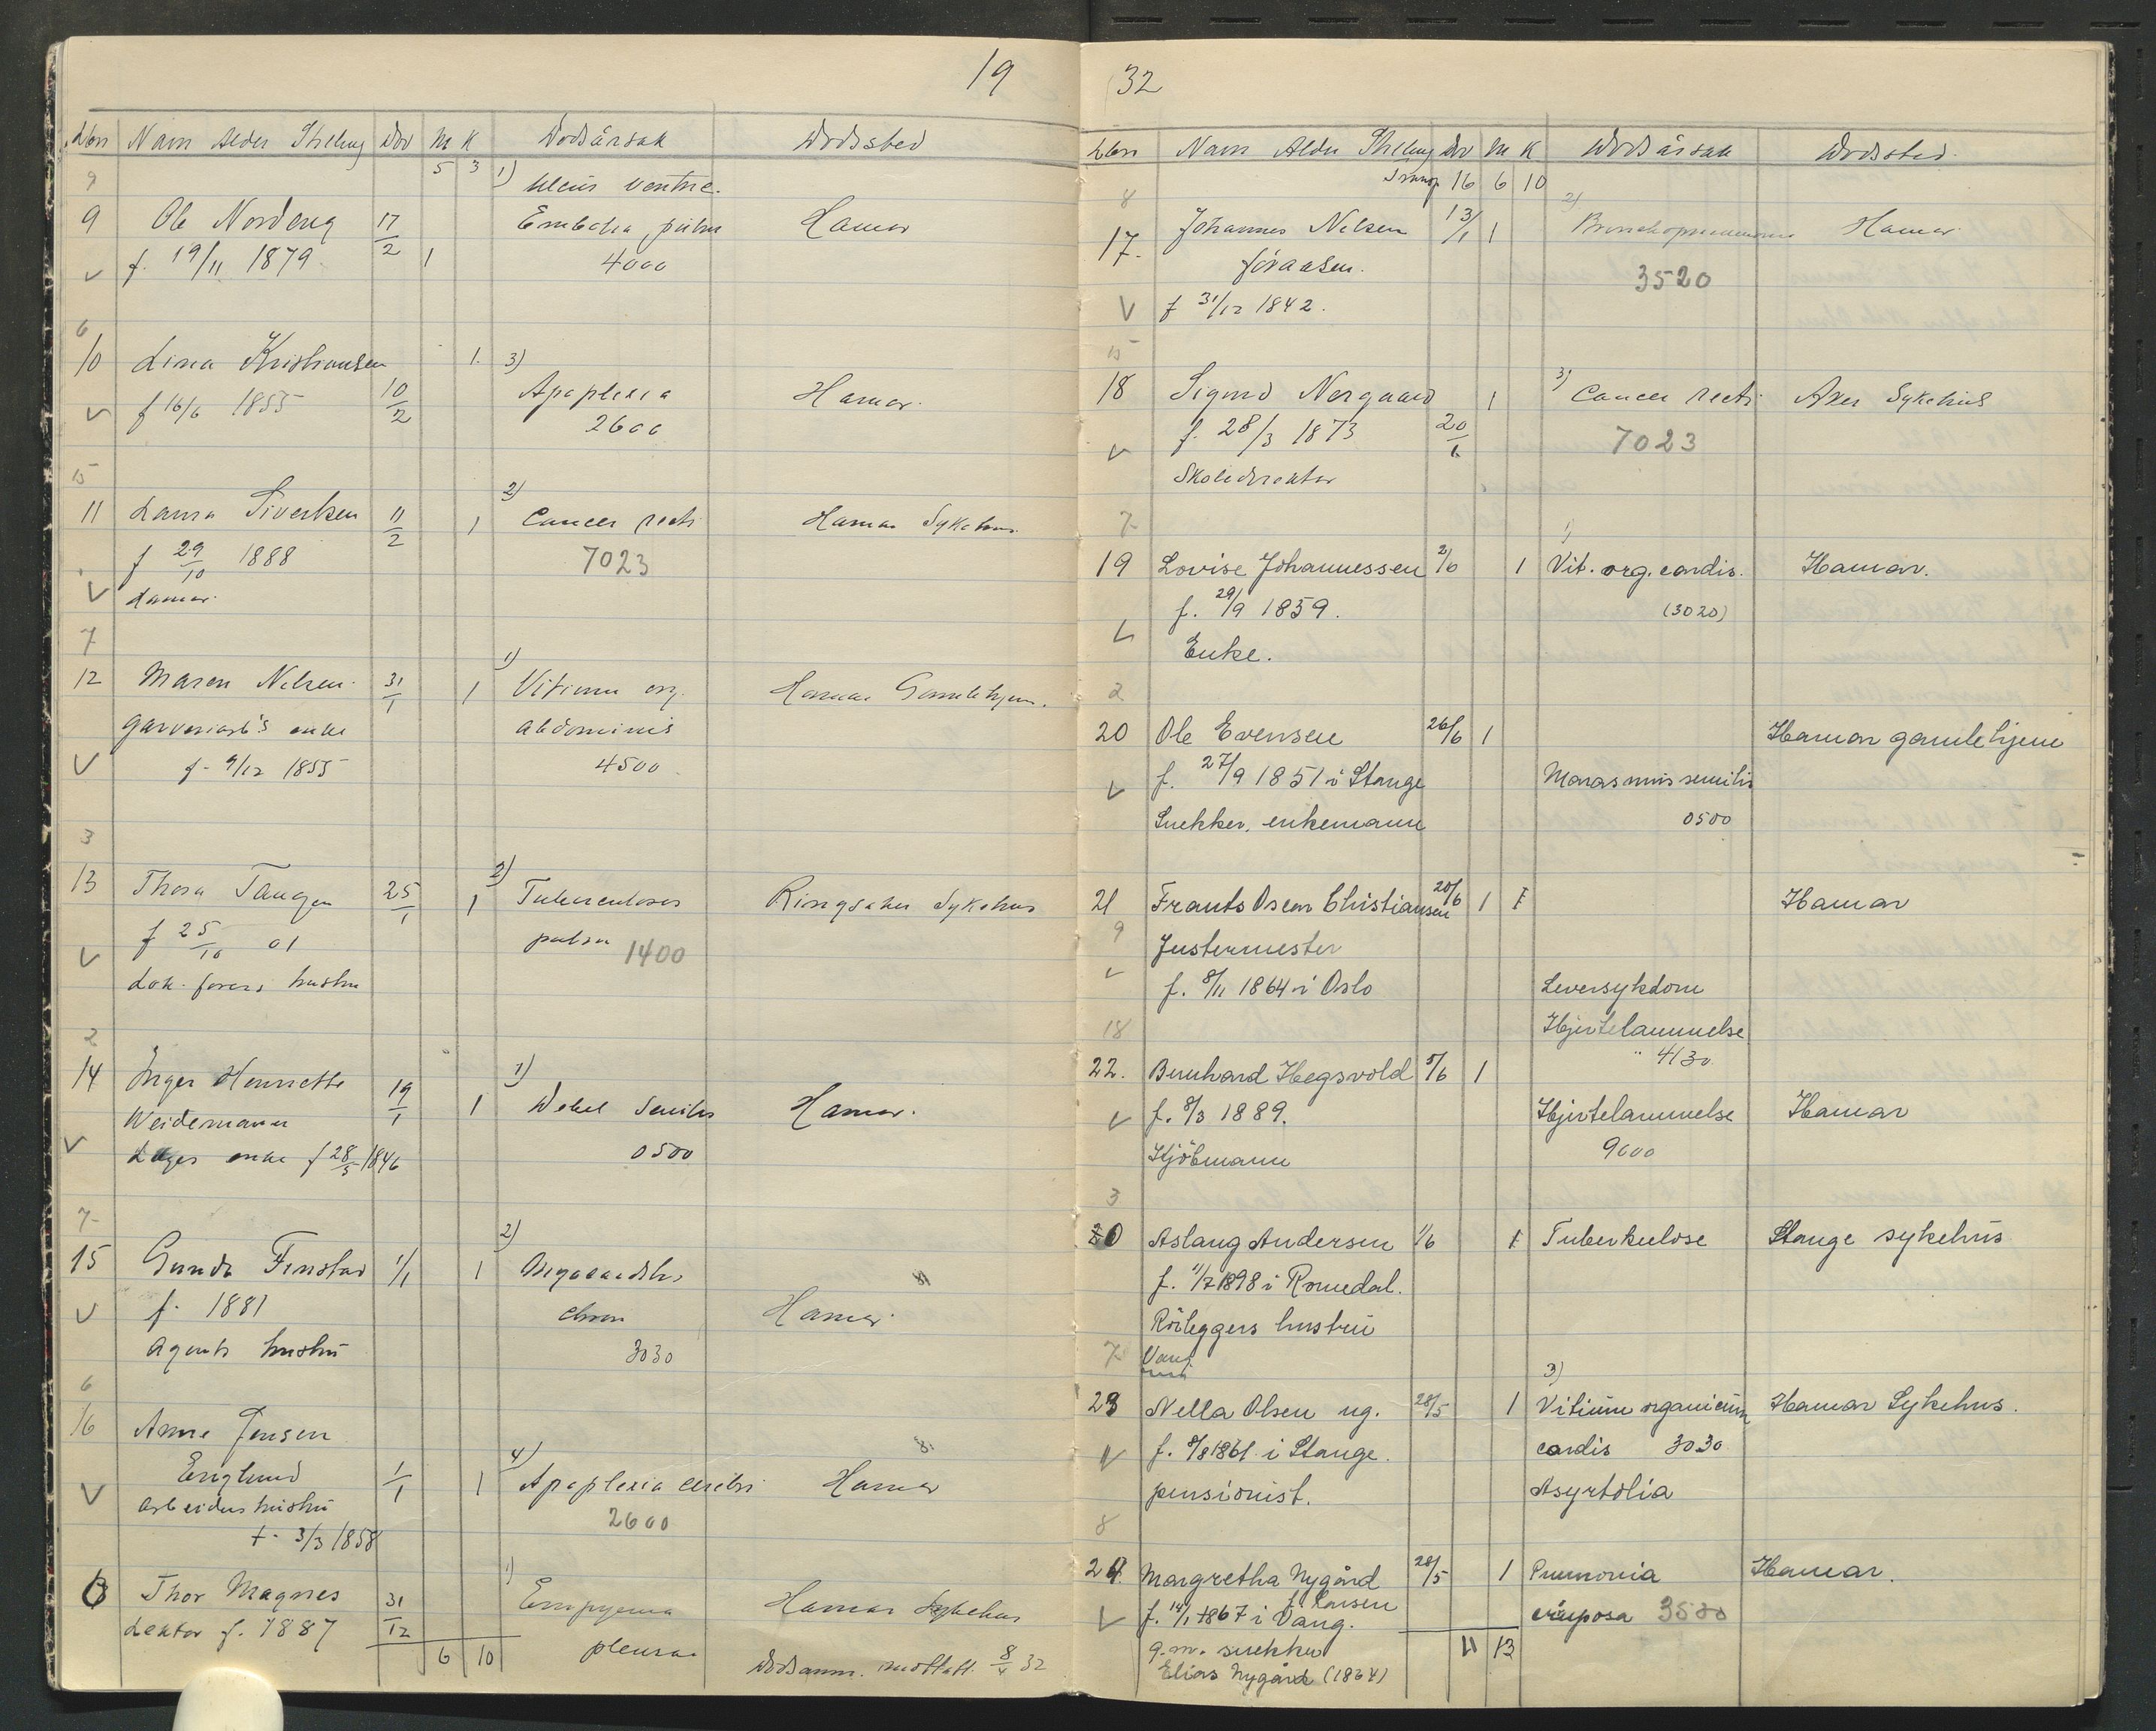 19
Lbn Navn Alder Stilling Død M K Dødsårsak Dødssted
5 3
9
9 Ole Nordeng 17/2 1) Ulcus ventric. Hamar
f. 19/11 1879. 1 Embolia pulm
V 4000
6
10 Lina Kristiansen 1. 3) Apoplexia Hamar.
V f 16/6 1855 10/2 2600
15
11 Laura Sivertsen 11/2 1 2) Cancer recti Hamar Sykehus.
f 29/10 1888 7023
V
7
12 Maren Nilsen 31/1 1 1) Vitium org. Hamar Gamlehjem.
enke abdominis
V f. 9/12 1855 4500
3
13 Thora Tangen 25/1 1 2) Tuberculosis Ringsaker Sykehus
V f 25/10 01 pulm 1400
Lok. førers hustru
2
14 Inger Henriette 19/1 1 1) Debil senilis Hamar.
Weidemann
V Læges enke f 28/5 1846 0500
7
15 Gunda Finstad 1/1 1 2)
V f. 1881 chron Hamar
Agents hustru 3030
6
16 Anne Jensen
Englund 1/1 1 4) Apoplexia cerebri Hamar
V arbeiders hustru 2600
f. 3/3 1858
Thor Magnes 31/12 1) Empyema Hamar Sykehus
Lektor f. 1887 pleurae
6 10 Dødsanm. mottatt 8/1 32
32
Lbn Navn Alder Stilling Dø M K Dødsårsak Dødssted.
Transp 16 6 10
8
17. Johannes Nilsen 13/1 1 2) Bronchopneumonia Hamar
Joraasen. 3520
V f 31/12 1842.
15
18 Sigurd Nørgaard 1 3) Cancer recti Aker Sykehus
V f. 28/3 1873 20/6 7023
Skoledirektør
7
19 Lovise Johannessen 2/6 1 1) Vit. org. cordis. Hamar.
f. 29/9 1859. (3020)
V Enke.
2
20 Ole Evensen 26/6 1 Hamar gamlehjem
V f. 27/9 1851 i Stange Marasmus senilis
Snekker, enkemann 0500
21 Frants Oscar Christiansen 20/6 1 Hamar
9 Justermester
V f. 8/11 1864 i Oslo Leversykdom
18 Hjertelammelse
4130
22. Bernhard Hegsvold 5/6 1
V f. 8/3 1889. Hjertelammelse Hamar
Kjöbmann 9600
3
Aslaug Andersen 1/6 1 Tuberkulose Stange sykehus
f. 1/7 1898 i Romedal.
Rörleggers hustru
7 Vang
23 Nella Olsen ug. 28/5 1 3) Vitium organicum Hamar Sykehus.
V f. 8/8 1861 i Stange. cordis 3030
pensionist. Asyrtolia
8
24. Margretha Nygård 28/5 1 Pnumonia Hamar.
f. Larsen
V f. 14/1 1867 i Vang. crouposa 3500
g.m. snekker 11 13
Elias Nygård (1864)